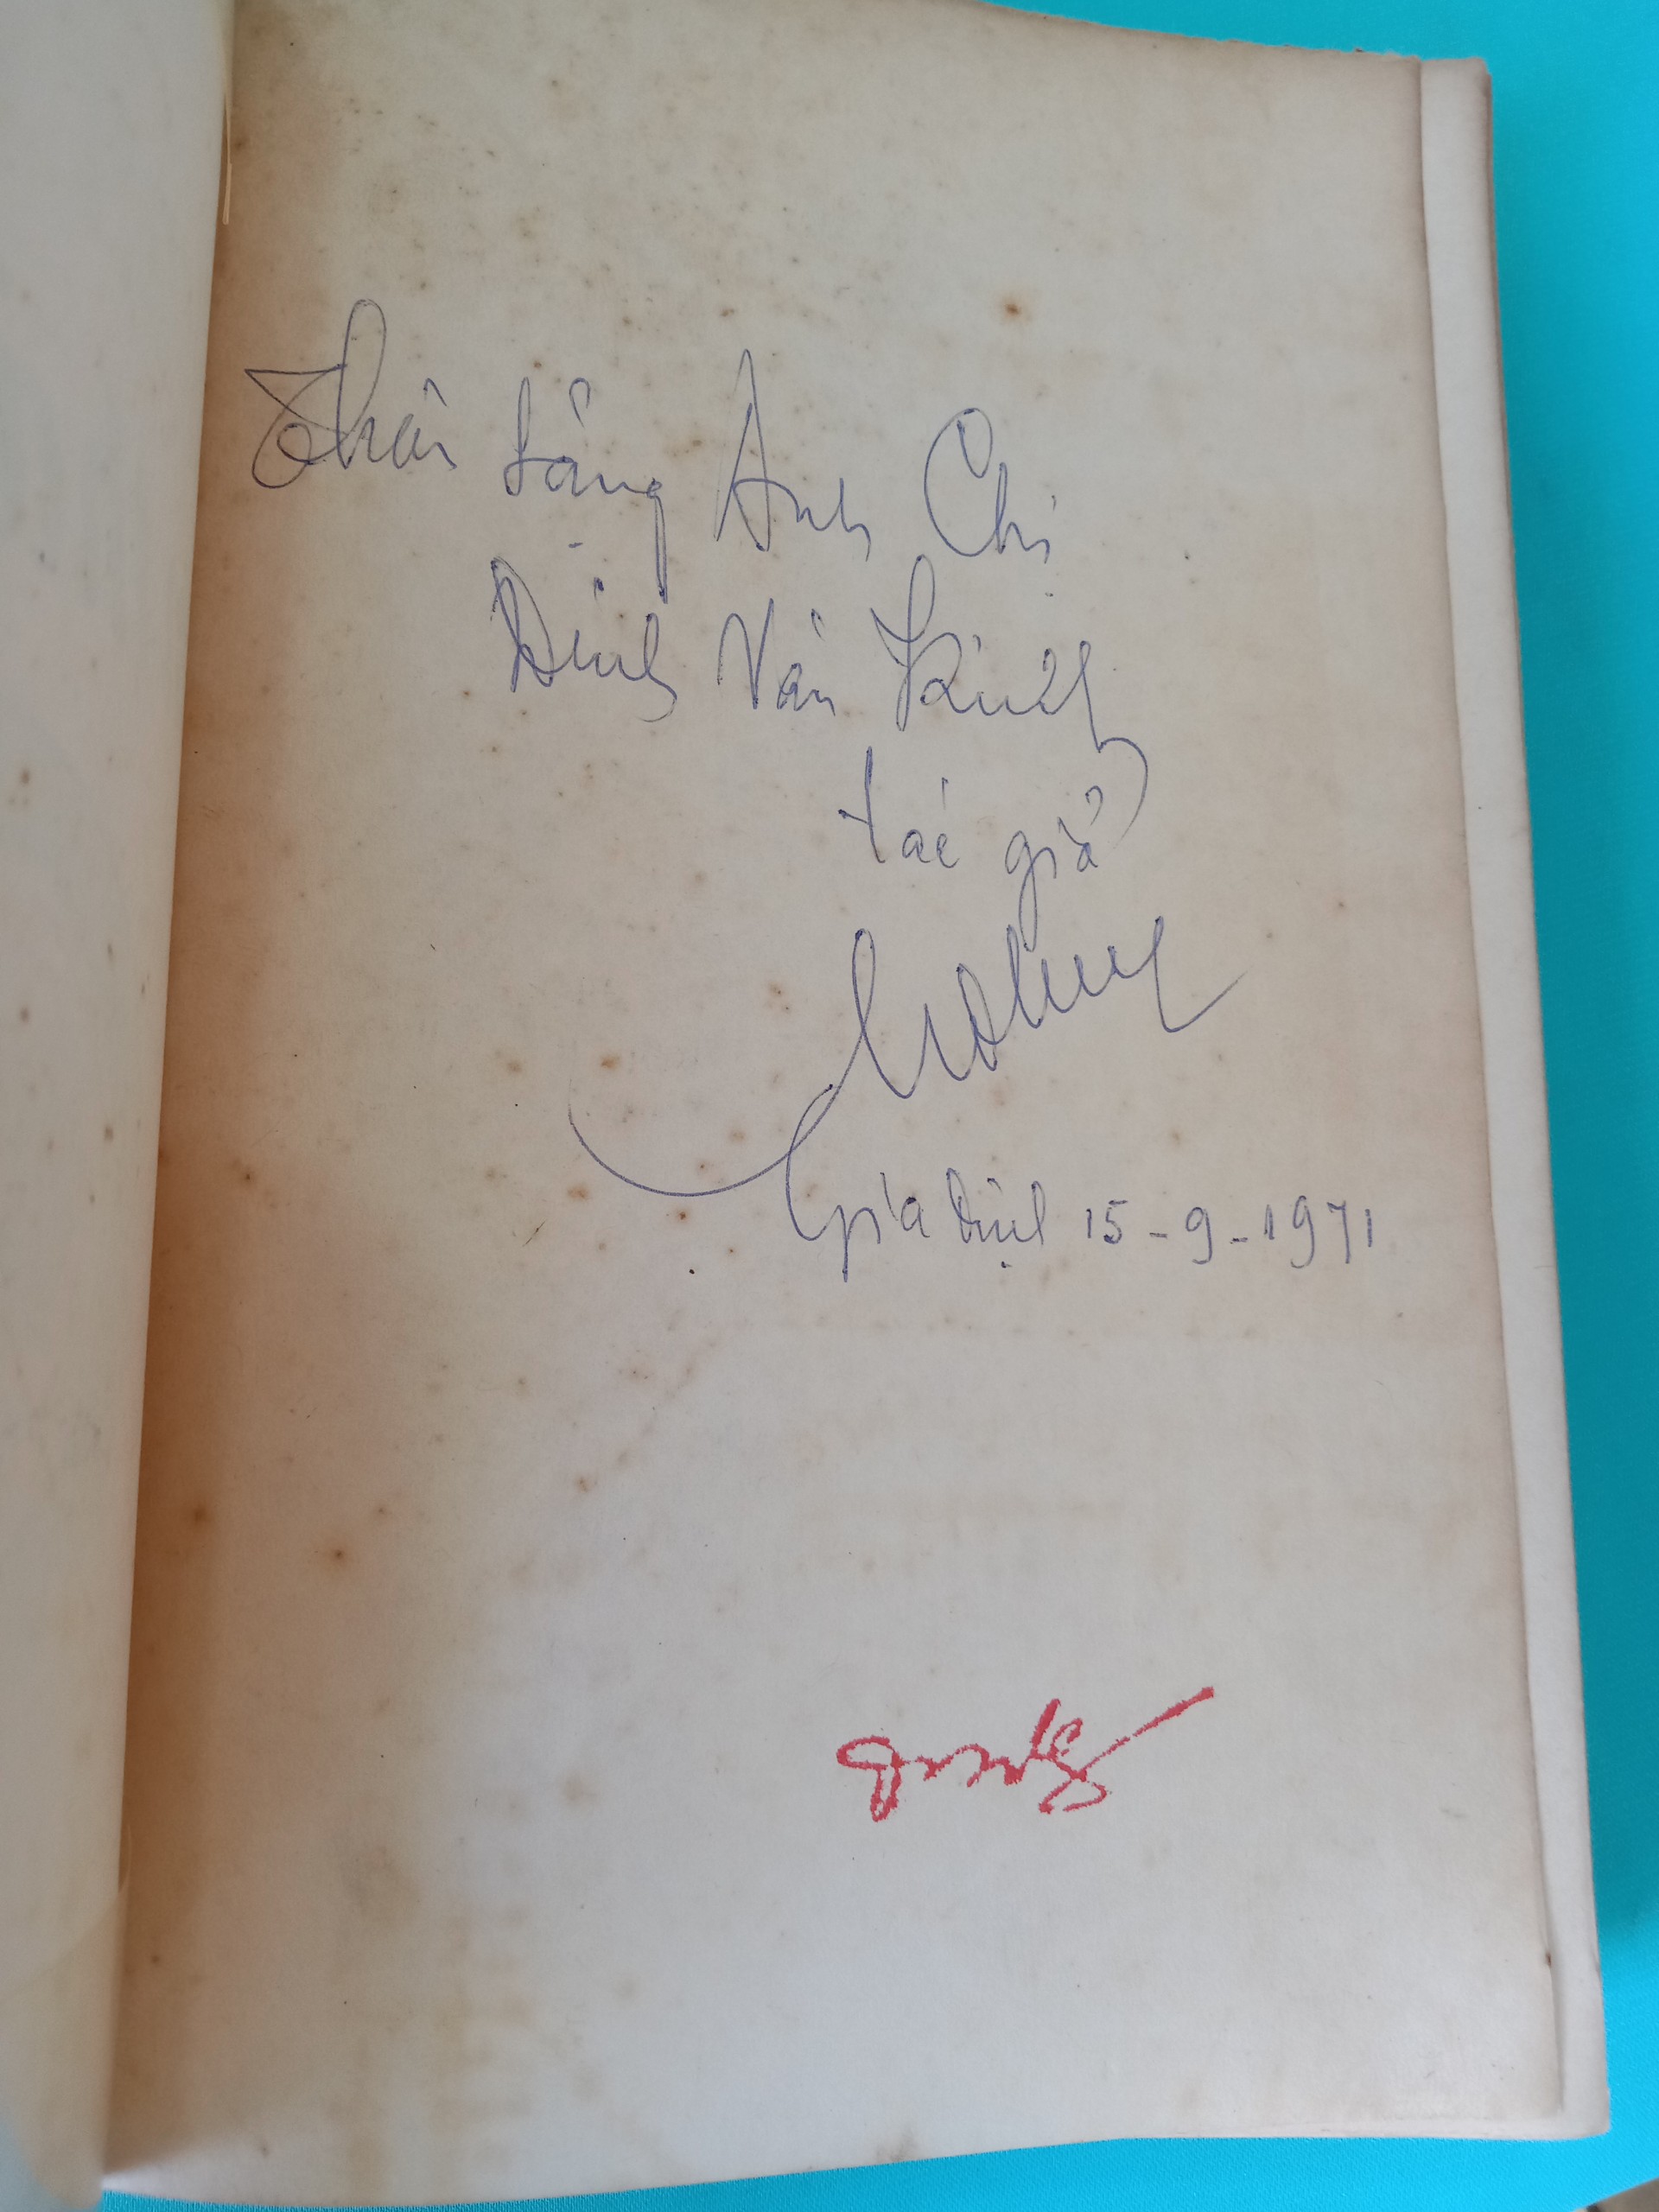 Thân tặng Anh Chị
Đinh Văn
tác giả
Gia Định 15-9-1971